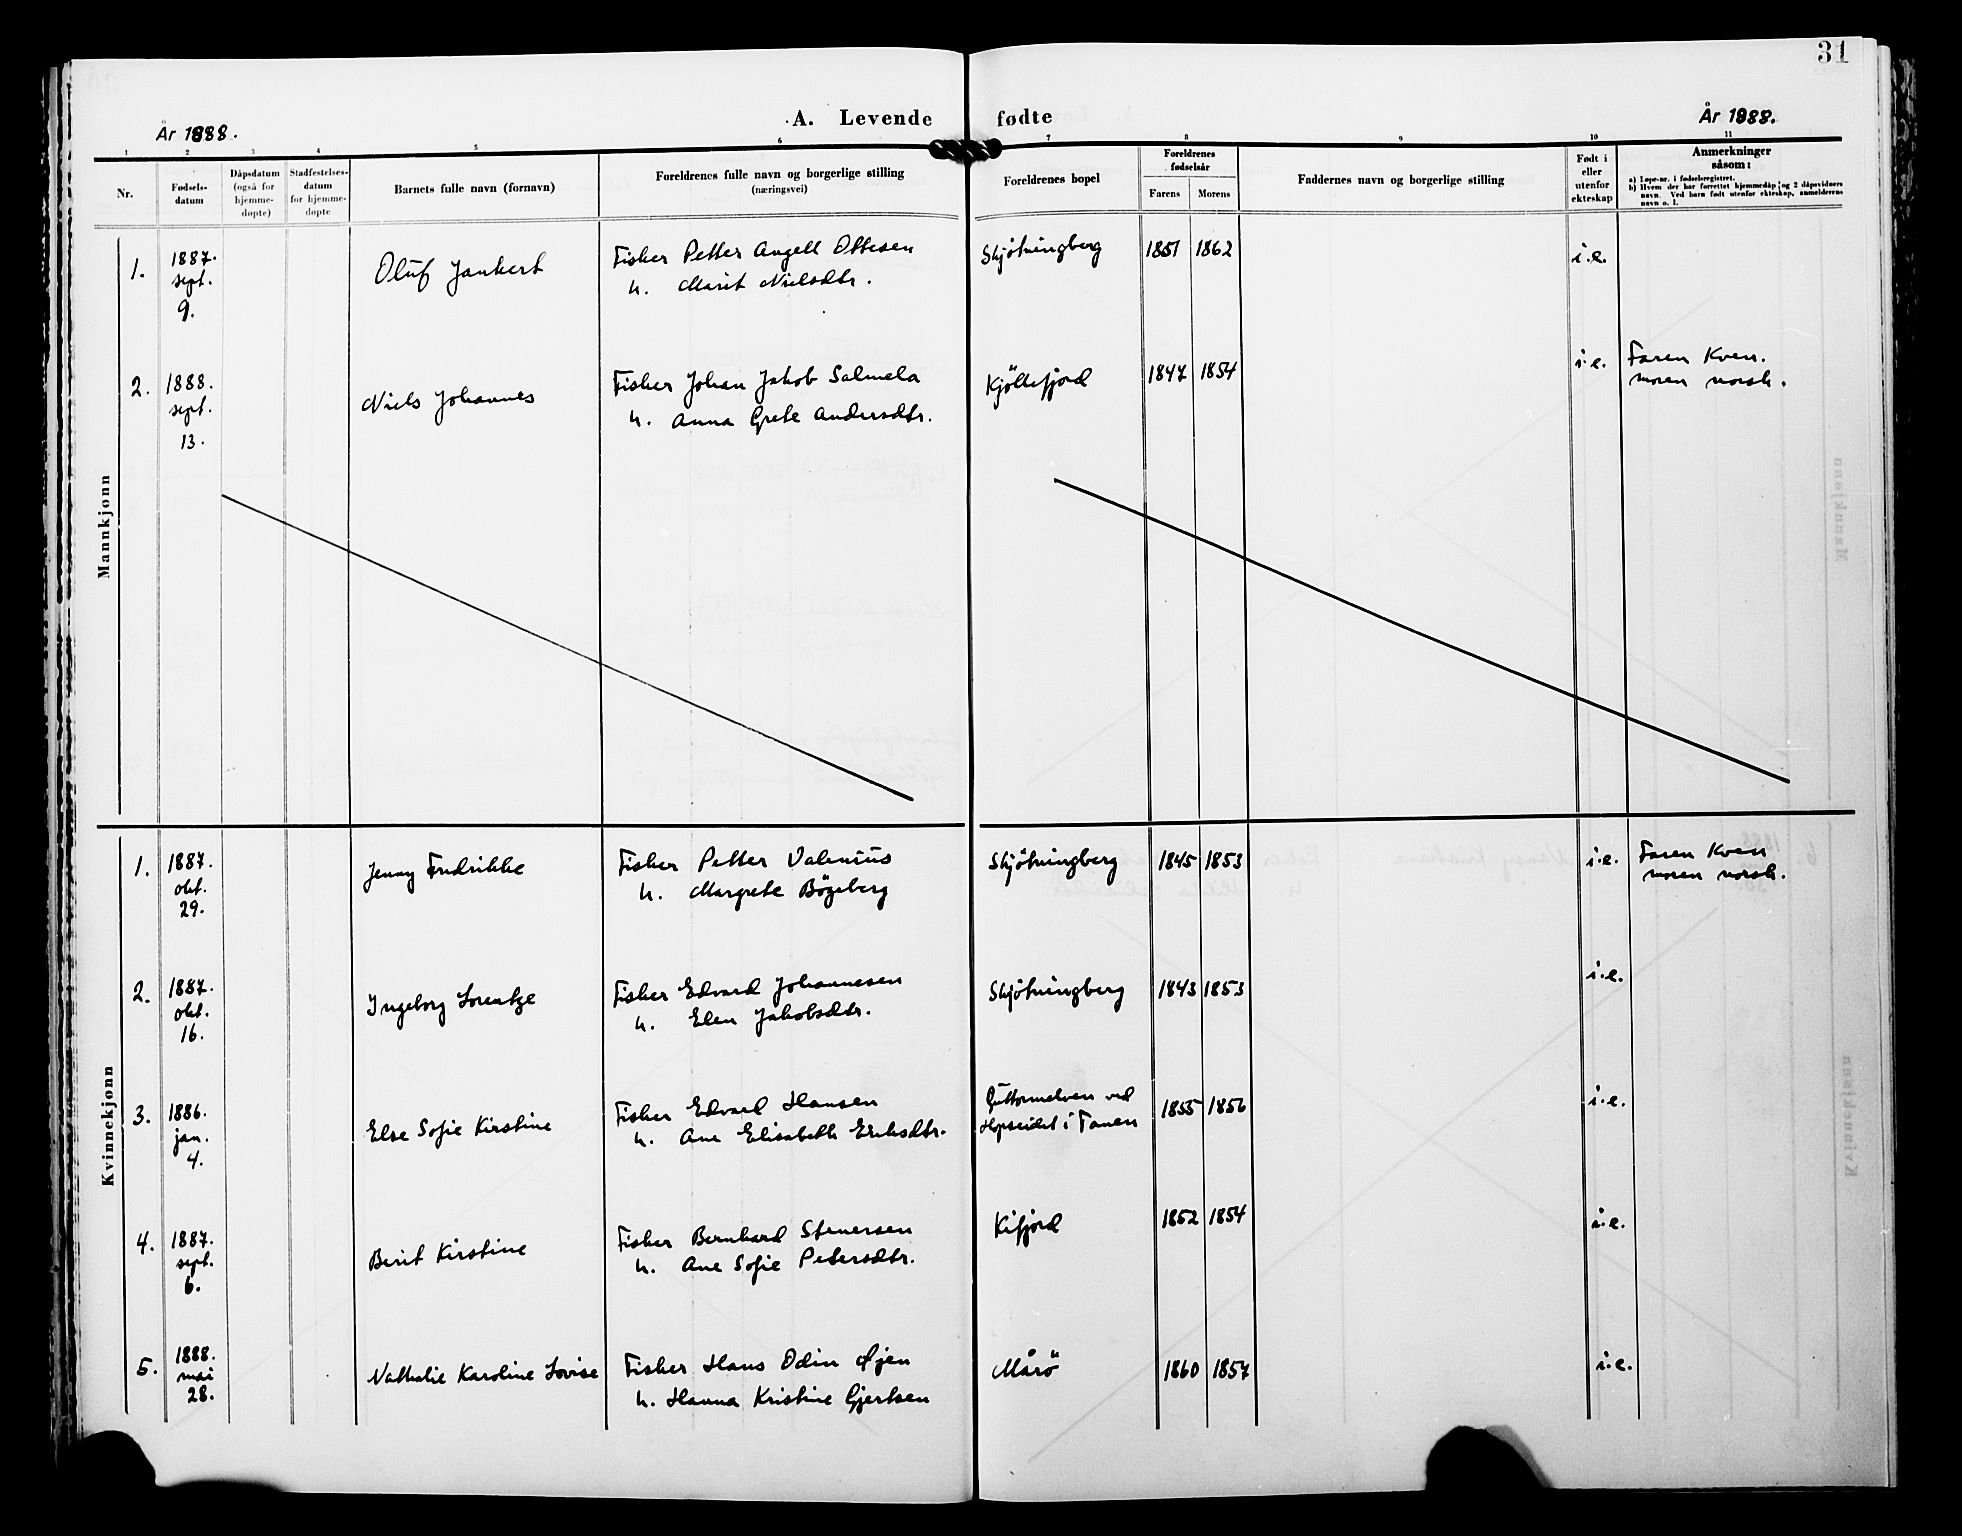 31
År 1888.
A. Levende fødte
År 1888.
1 2 3 4 5 6 7 8 9 10 11
Nr.
Fødsels-
datum
Dåpsdatum
(også for
hjemme-
døpte)
Stadfestelses-
datum
for hjemme-
døpte
Barnets fulle navn (fornavn)
Foreldrenes fulle navn og borgerlige stilling
(næringsvei)
Foreldrenes bopel
Foreldrenes
fødselsår
Farens Morens
Faddernes navn og borgerlige stilling
Født i
eller
utenfor
ekteskap
Anmerkninger
såsom:
a) Løpe-nr. i fødselsregistret.
b) Hvem der har forrettet hjemmedåp og 2 dåpsvidners
navn. Ved barn født utenfor ekteskap, anmelderens
navn o. l.
Mannkjønn
1. 1887. Oluf Jankert Fisker Petter Angell Ottesen Skjötningberg 1851 1862 i.e.
sept. h. Marit Nielsdtr.
9.
2. 1888. Niels Johannes Fisker Johan Jakob Salmela Kjöllefjord 1847 1854 i.e. Faren Kven.
sept. h. Anna Grete Andersdtr. moren norsk.
13.
Kvinnekjønn
1. 1887. Jenny Fredrikke Fisker Petter Valenius Skjötningberg 1845 1853 i.e. Faren Kven
okt. h. Margrete Bögeberg moren norsk.
29.
2. 1887. Ingeborg Lorentze Fisker Edvard Johannesen Skjötningberg 1843 1853 i.e.
okt. h. Elen Jakobsdtr.
16.
3. 1886. Else Sofie Kirstine Fisker Edvard Hansen Guttormelven ved 1855 1856 i.e.
jan. h. Ane Elisabeth Eriksdtr. Hopseidet i Tanen
4.
4. 1887. Berit Kirstine Fisker Bernhard Stenersen Kifjord 1852 1854 i.e.
sept. h. Ane Sofie Petersdtr.
6.
5. 1888. Nathalie Karoline Lovise Fisker Hans Odin Øjen Mårö 1860 1857 i.e.
mai h. Hanna Kristine Gjertsen
28.